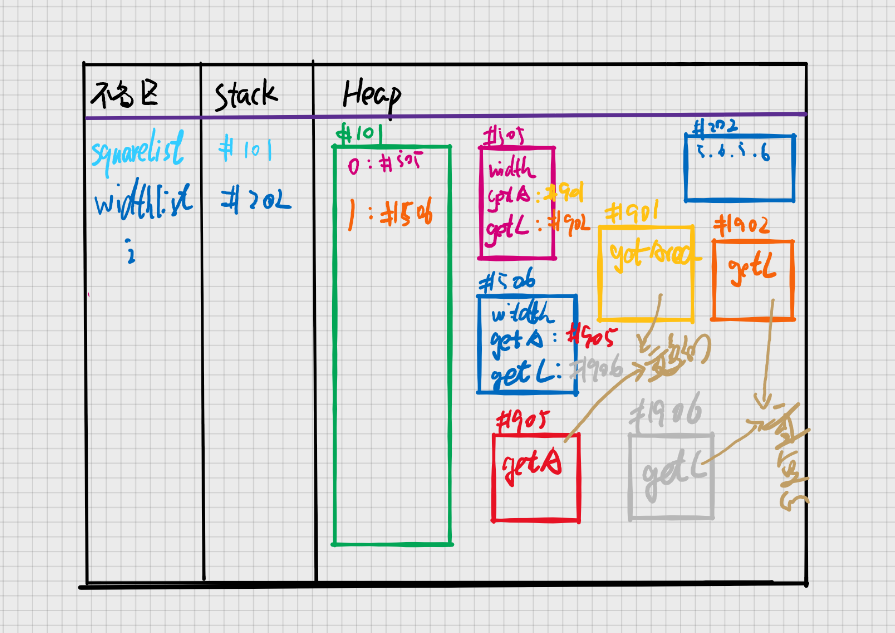 不名区
Stack
Heap
squarelist
#101
widthlist
#202
i
#101
0:#505
1:#506
#505
width
getA:#901
getL:#902
#202
5.6.5.6
#901
getArea
#902
getL
#506
width
getA:#905
getL:#906
#905
getA
#906
getL